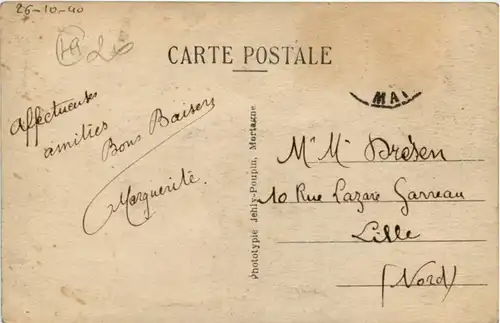 26-10-40
CARTE POSTALE
MAI
Affectueuses
amitiés
Bons Baisers
Marguerite.
Phototypie Jehly-Poupin, Mortagne
Mr Me Drésen
10 Rue Lazare Garreau
Lille
(Nord)